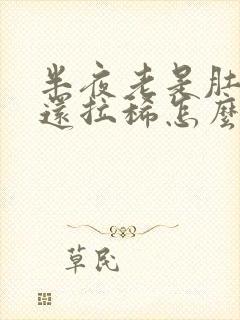 半夜老是肚
還拉稀怎麼
草民